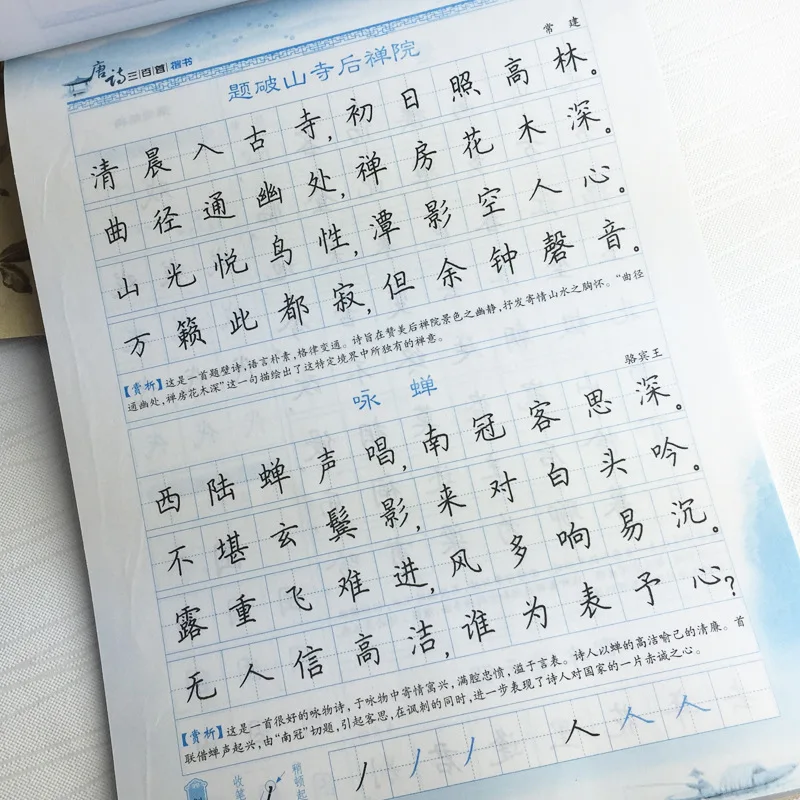 唐诗三百首 楷书
题破山寺后禅院
常建
清晨入古寺,初日照高林。
曲径通幽处,禅房花木深。
山光悦鸟性,潭影空人心。
万籁此都寂,但余钟磬音。
【赏析】这是一首题壁诗,语言朴素,格律变通。诗旨在赞美后禅院景色之幽静,抒发寄情山水之胸怀。“曲径
通幽处,禅房花木深”这一句描绘出了这特定境界中所独有的禅意。
咏蝉
骆宾王
西陆蝉声唱,南冠客思深。
不堪玄鬓影,来对白头吟。
露重飞难进,风多响易沉。
无人信高洁,谁为表予心?
【赏析】这是一首很好的咏物诗,于咏物中寄情寓兴,满腔忠愤,溢于言表。诗人以蝉的高洁喻己的清廉。首
联借蝉声起兴,由“南冠”切题,引起客思,在讽刺的同时,进一步表现了诗人对国家的一片赤诚之心。
收笔 稍顿起 丿 丿 丿 人 人 人